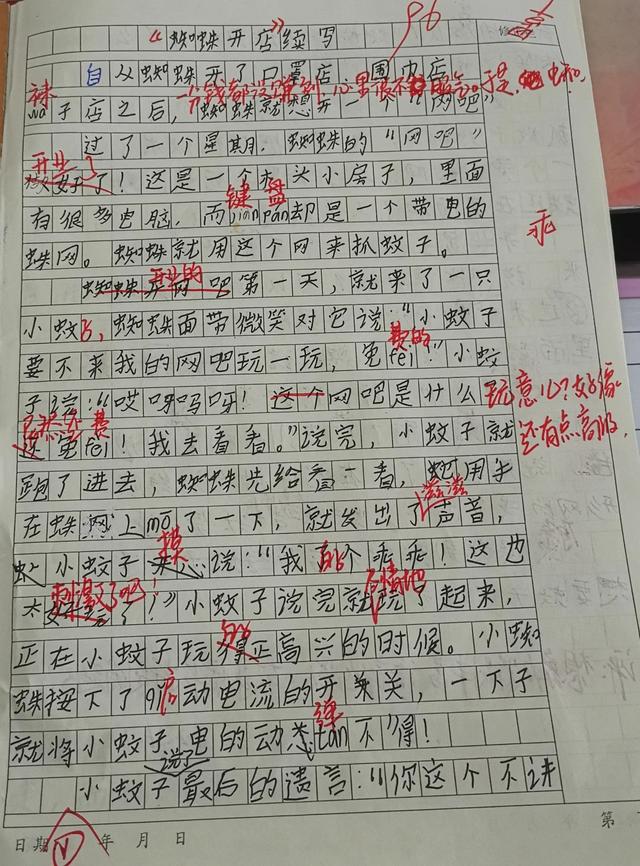 96
《蜘蛛开店》续写
自从蜘蛛开了口罩店、围巾店、
袜 wà子店之后，一分钱都没赚到，心里很不服气。于是，蜘蛛就想开一个“网吧”
过了一个星期，蜘蛛的“网吧”
开业了！这是一个木头小房子，里面
有很多电脑，而jiàn pán 键盘却是一个带电的
蛛网。蜘蛛就用这个网来抓蚊子。
蜘蛛开网吧 开业的第一天，就来了一只
小蚊子，蜘蛛面带微笑对它说：“小蚊子
要不来我的网吧玩一玩，免fèi 费的！”小蚊
子说：“哎呀妈呀！这个网吧是什么玩意儿？好像还有点高级，
还免fèi 费！我去看看。”说完，小蚊子就
跑了进去，蜘蛛先给看一看，它用手
在蛛网上mō 摸了一下，就发出了滋滋声音，
小蚊子说：“我的个乖乖！这也
太刺激了吧！”小蚊子说完就玩了起来，
正在小蚊子玩得正高兴的时候。小蜘
蛛按下了qǐ 启动电流的开关，一下子
就将小蚊子电的动态tán 弹不得！
小蚊子说了最后的遗言：“你这个不讲
乖
日期 年 月 日
第